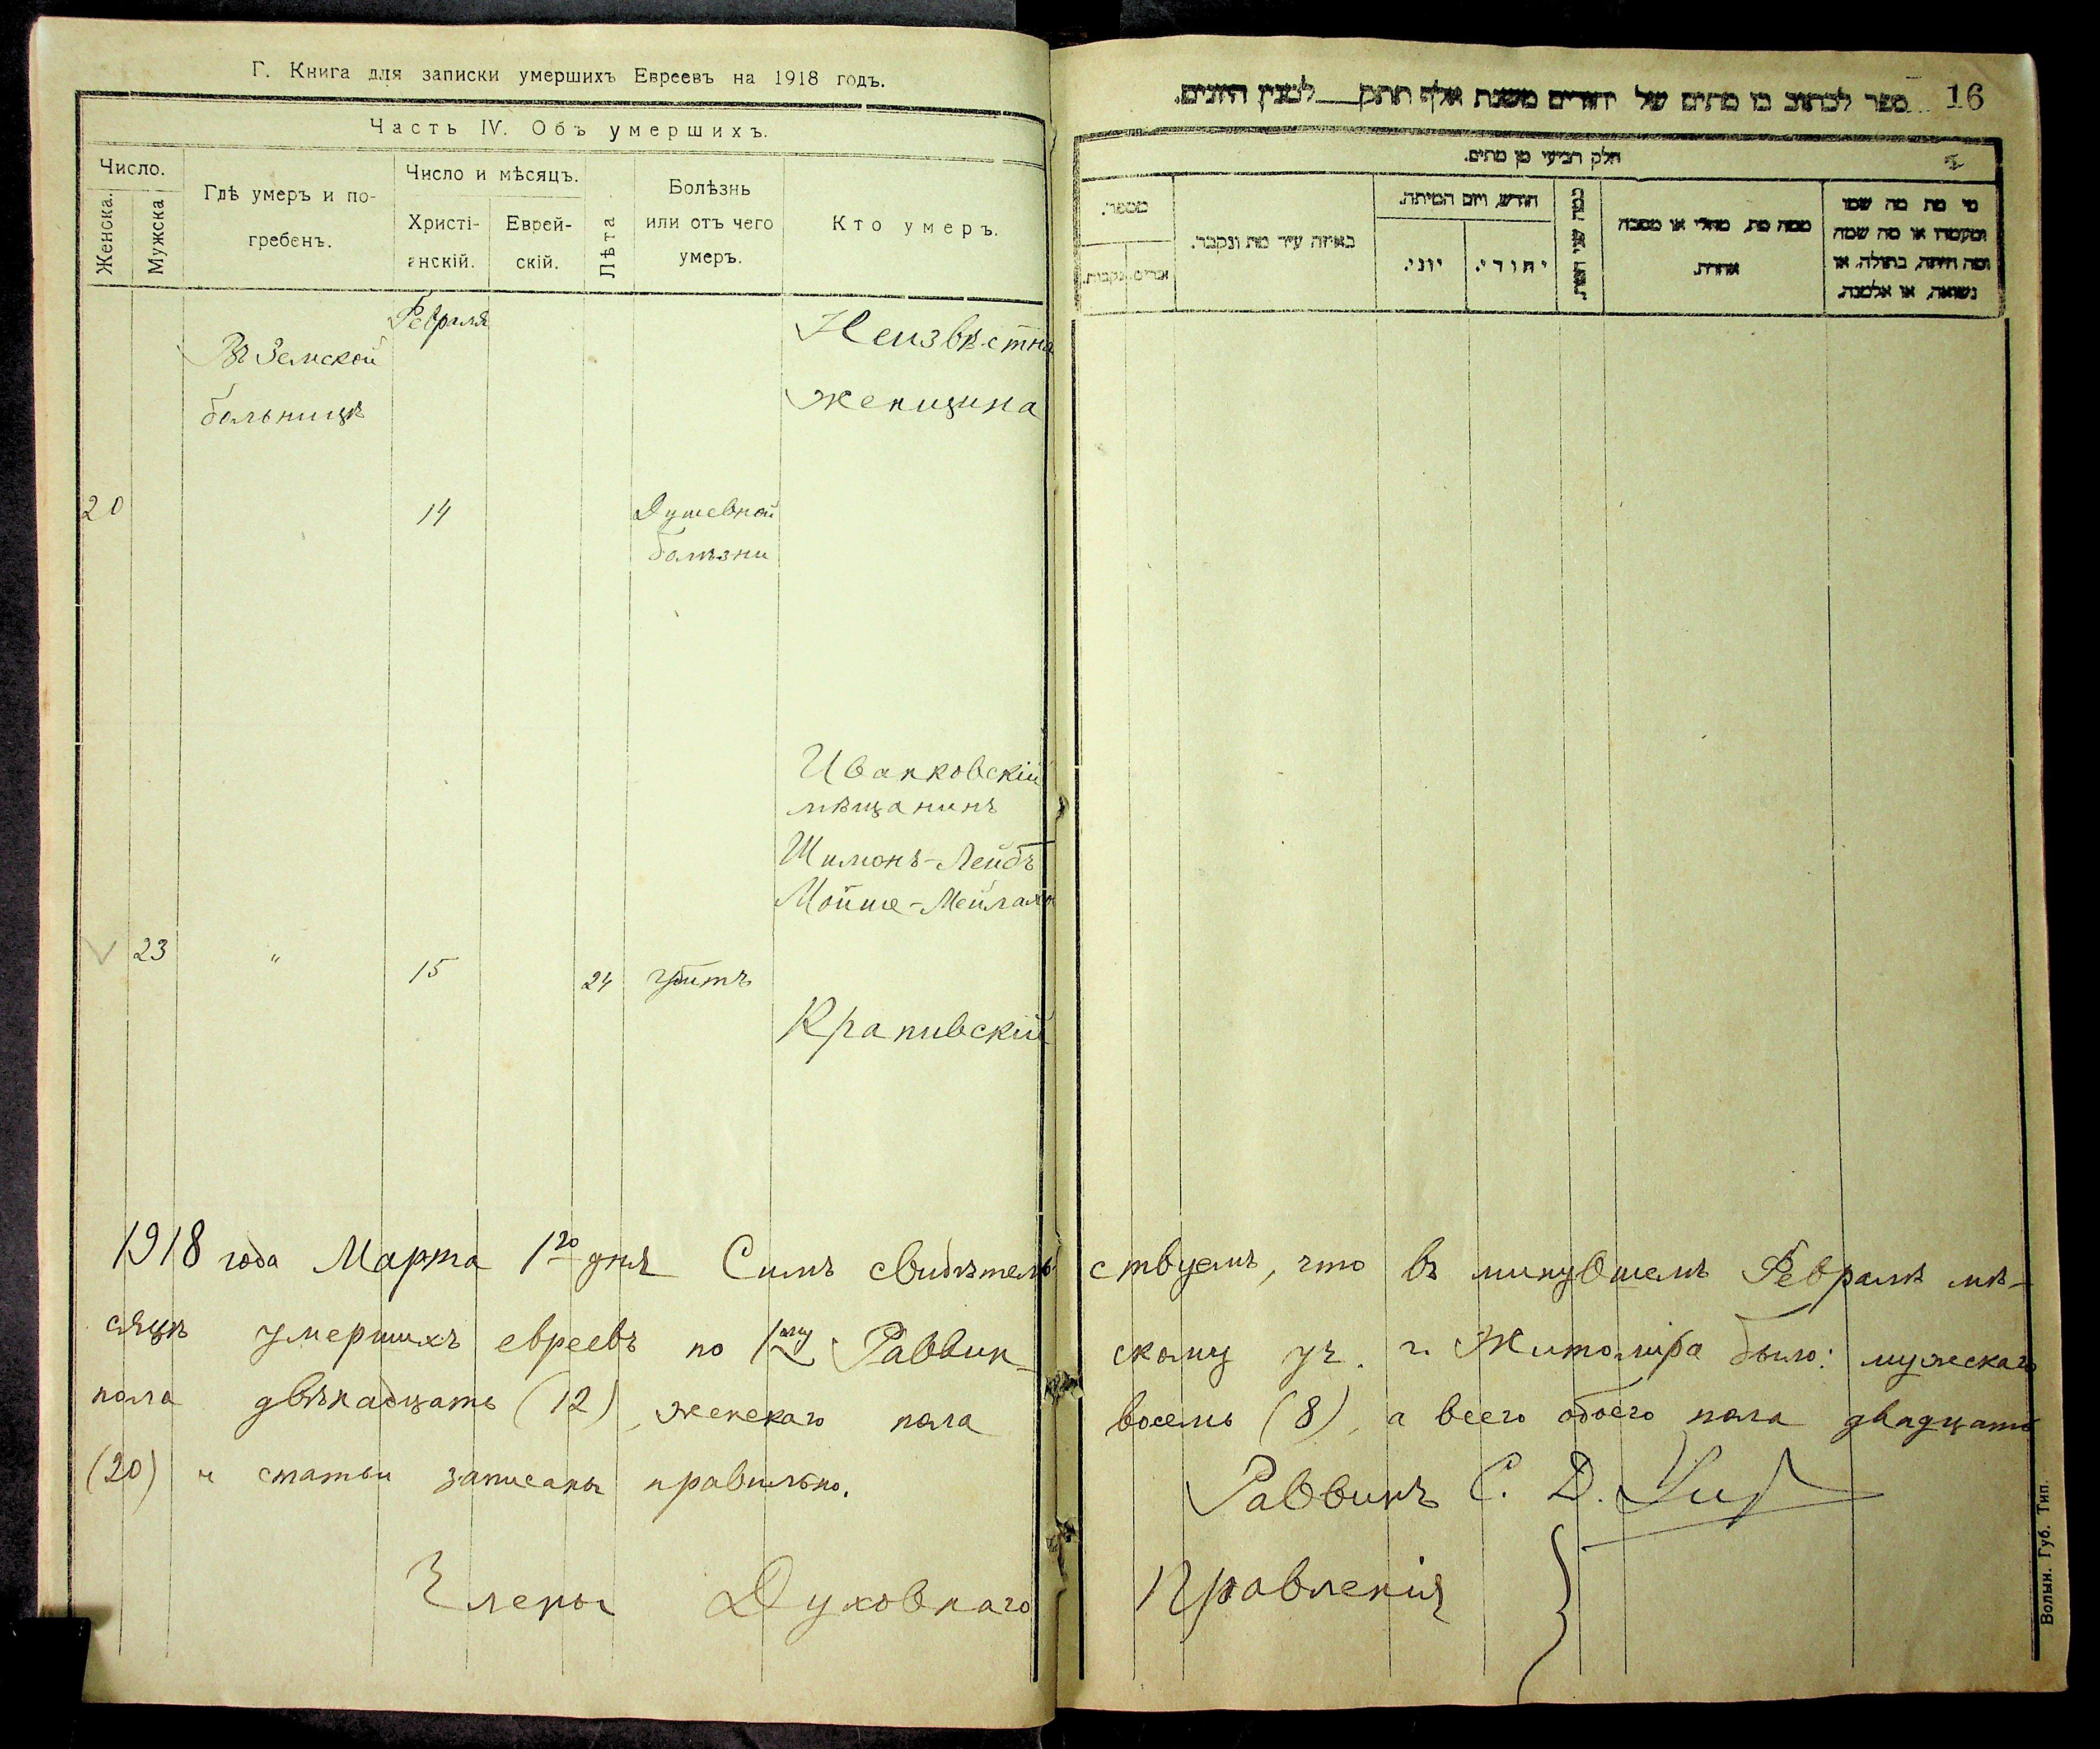 Г. Книга для записки умершихъ Евреевъ на 1918 годъ.
Часть IV. Объ умершихъ.
Число.
Женска.
Мужска
Гдѣ умеръ и по-
гребенъ.
Число и мѣсяцъ.
Христі-
анскій.
Еврей-
скій.
Лѣта
Болѣзнь
или отъ чего
умеръ.
Кто умеръ.
Февраля
Въ Земской
больницѣ
Неизвѣстна
женщина
20
14
Душевной
болѣзни
Иванковскій
мѣщанинъ
Шимонъ-Лейбъ
Мойше-Мейлах
23
"
15
24
убитъ
Крапивскій
1918 года Марта 1го дня Симъ свидѣтель
сяцѣ умершихъ евреевъ по 1му Раввин-
пола двѣнадцать (12), женскаго пола
(20) и статьи записаны правильно.
Члены Духовнаго
16
ספר לכתוב בו מתים של יהודים משנת אלף תתק לבנין היונים.
חלק רביעי מן מתים.
מספר.
זכרים
נקבות.
באיזה עיר מת ונקבר.
חודש, ויום המיתה.
יוני.
יהודי.
כמה שני חיותו
ממה מת, מחלי או מסבה
אחרת.
מי מת מה שמו
ומעמדו או מה שמה
ומה היתה, בתולה, או
נשואה, או אלמנה.
ствуемъ, что въ минувшемъ Февралѣ мѣ-
скому уч. г. Житоміра было: мужескаго
восемь (8), а всего обоего пола двадцать
Раввинъ С. Д.
Правленія
Волын. Губ. Тип.